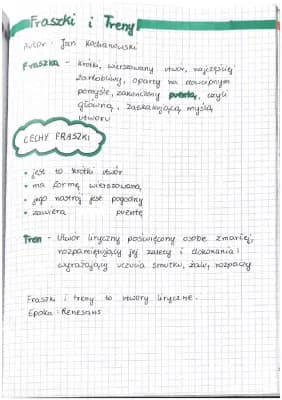 Fraszki i Treny
Autor - Jan Kochanowski
Fraszka - krótki, wierszowany utwór, najczęściej
żartobliwy, oparty na dowcipnym
pomyśle, zakończony puentą, czyli
główną, zaskakującą myślą
utworu
CECHY FRASZKI
• jest to krótki utwór
• ma formę wierszowaną
• jego nastrój jest pogodny
• zawiera puentę
Tren - Utwór liryczny poświęcony osobie zmarłej,
rozpamiętujący jej zalety i dokonania i
wyrażający uczucia smutku, żalu, rozpaczy
Fraszki i treny to utwory liryczne.
Epoka: Renesans